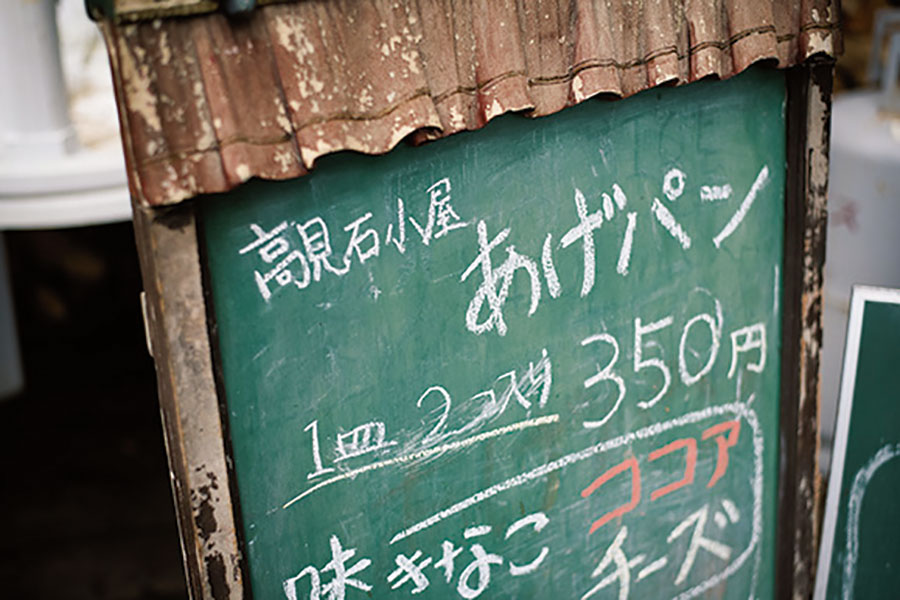 高見石小屋 あげパン
1皿 2コ入り 350円
味 きなこ ココア
チーズ